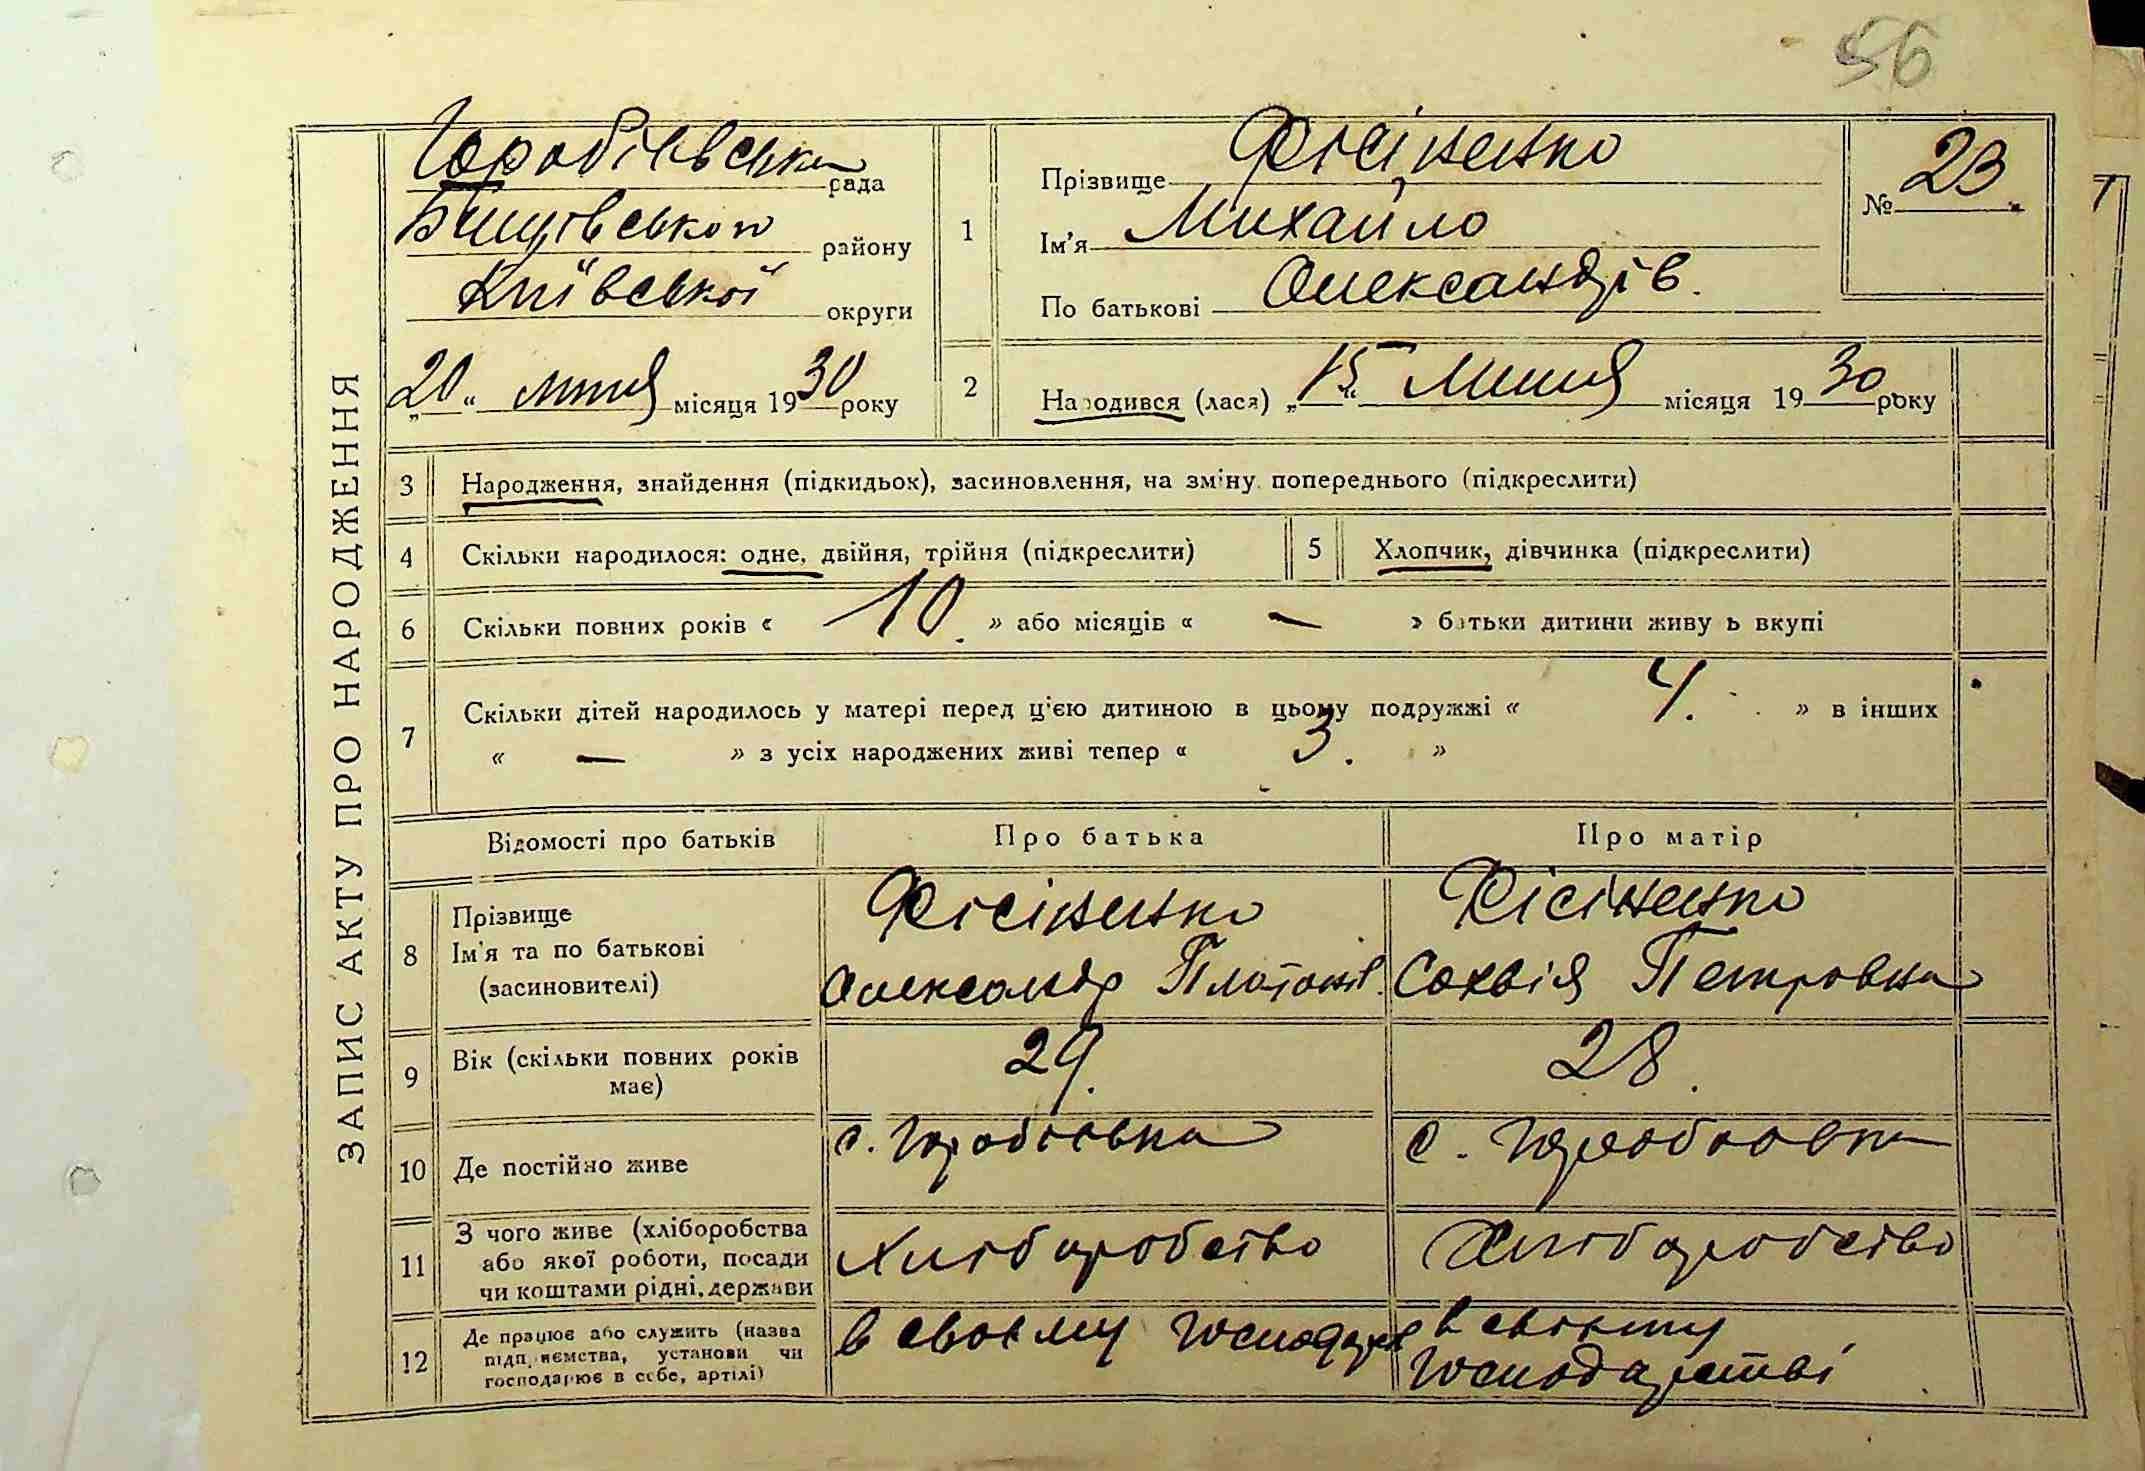 56
ЗАПИС АКТУ ПРО НАРОДЖЕННЯ
Горобіївська рада
Бишівського району
Київської округи
„20“ липня місяця 1930 року
1
Прізвище Фісіненко
Ім'я Михайло
По батькові Олександрів.
№ 23
2
Народився (лася) „15“ Липня місяця 1930 року
3 Народження, знайдення (підкидьок), засиновлення, на зміну попереднього (підкреслити)
4 Скільки народилося: одне, двійня, трійня (підкреслити)
5 Хлопчик, дівчинка (підкреслити)
6 Скільки повних років « 10. » або місяців « — » батьки дитини живуть вкупі
7 Скільки дітей народилось у матері перед ц'єю дитиною в цьому подружжі « 4. » в інших
« — » з усіх народжених живі тепер « 3. »
Відомості про батьків Про батька Про матір
8 Прізвище Ім'я та по батькові (засиновителі)
Фісіненко
Олександр Платонів.
Фісіненко
Сохвія Петровна
9 Вік (скільки повних років має) 29. 28.
10 Де постійно живе с. Горобіївка с. Горобіївка
11 З чого живе (хліборобства або якої роботи, посади чи коштами рідні, держави
Хліборобство Хліборобство
12 Де працює або служить (назва підприємства, установи чи господарює в себе, артілі)
в своєму господар
в своєму
господарстві